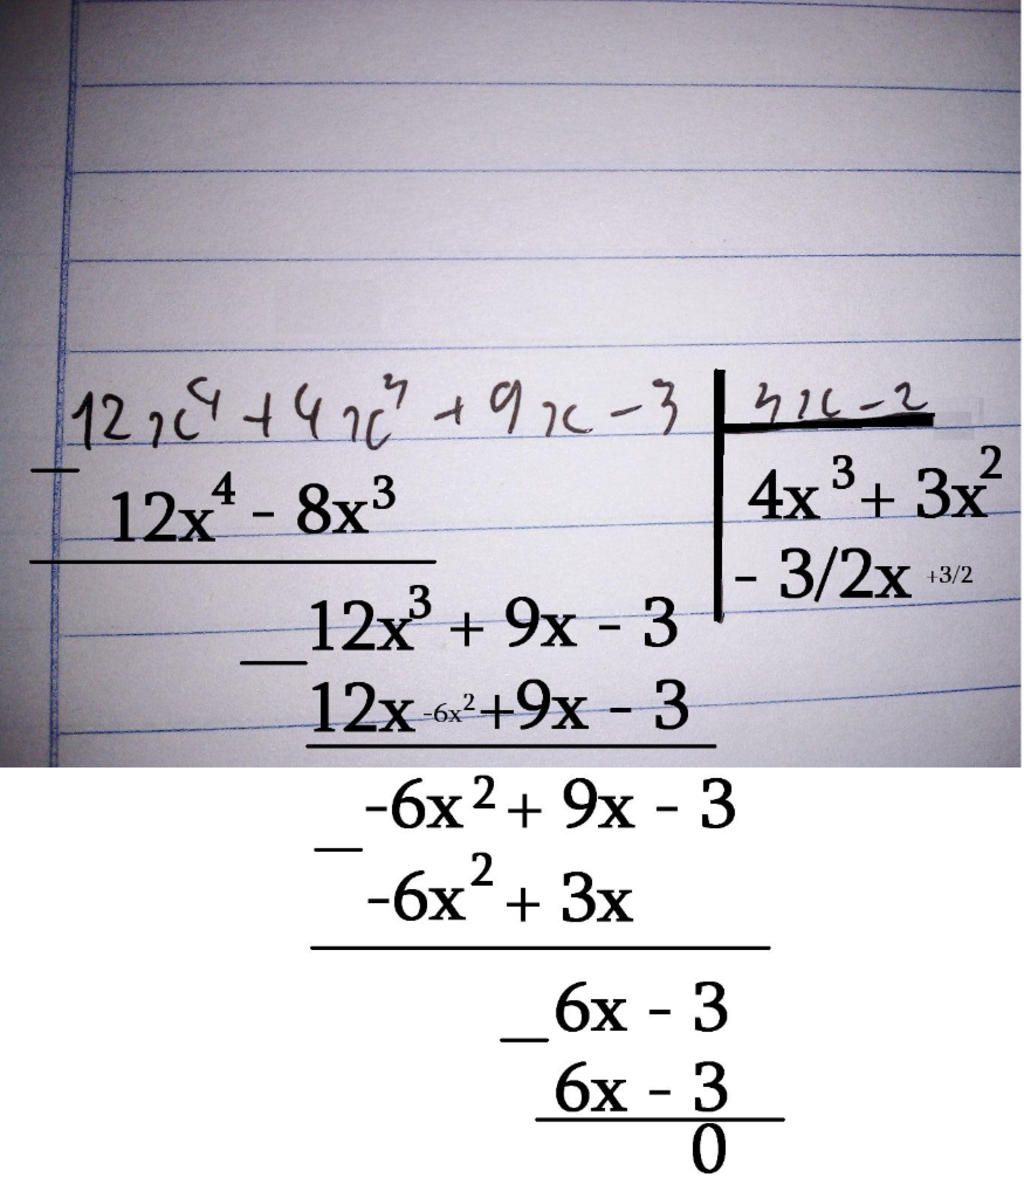 12x⁴ + 4x³ + 9x - 3 | 3x - 2
12x⁴ - 8x³
4x³ + 3x²
- 3/2x +3/2
12x³ + 9x - 3
12x -6x² +9x - 3
-6x² + 9x - 3
-6x² + 3x
6x - 3
6x - 3
0